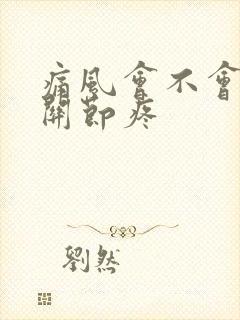 痛風會不會
關節疼
劉然